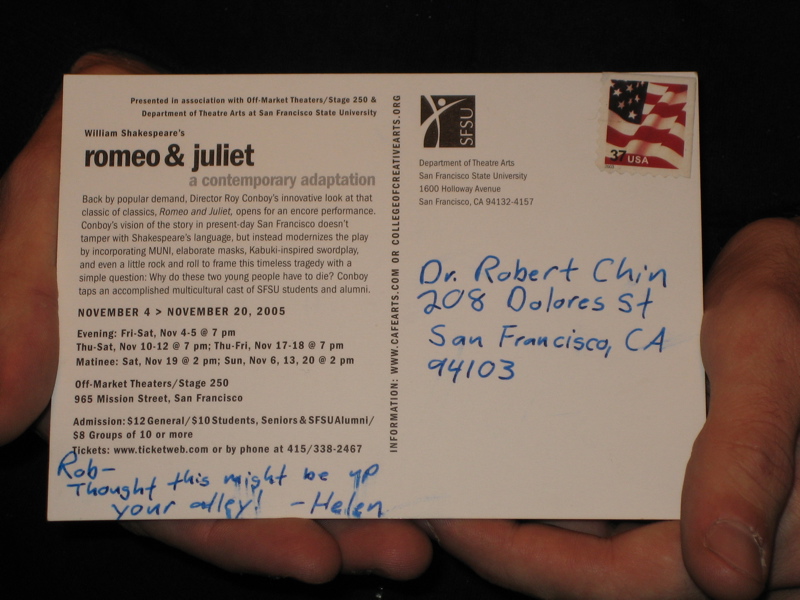 Presented in association with Off-Market Theaters/Stage 250 &
Department of Theatre Arts at San Francisco State University
William Shakespeare's
romeo & juliet
a contemporary adaptation
Back by popular demand, Director Roy Conboy's innovative look at that
classic of classics, Romeo and Juliet, opens for an encore performance.
Conboy's vision of the story in present-day San Francisco doesn't
tamper with Shakespeare's language, but instead modernizes the play
by incorporating MUNI, elaborate masks, Kabuki-inspired swordplay,
and even a little rock and roll to frame this timeless tragedy with a
simple question: Why do these two young people have to die? Conboy
taps an accomplished multicultural cast of SFSU students and alumni.
NOVEMBER 4 > NOVEMBER 20, 2005
Evening: Fri-Sat, Nov 4-5 @ 7 pm
Thu-Sat, Nov 10-12 @ 7 pm; Thu-Fri, Nov 17-18 @ 7 pm
Matinee: Sat, Nov 19 @ 2 pm; Sun, Nov 6, 13, 20 @ 2 pm
Off-Market Theaters/Stage 250
965 Mission Street, San Francisco
Admission: $12 General/$10 Students, Seniors & SFSU Alumni/
$8 Groups of 10 or more
Tickets: www.ticketweb.com or by phone at 415/338-2467
Rob-
Thought this might be up
your alley! -Helen
INFORMATION: WWW.CAFEARTS.COM OR COLLEGEOFCREATIVEARTS.ORG
SFSU
Department of Theatre Arts
San Francisco State University
1600 Holloway Avenue
San Francisco, CA 94132-4157
37 USA
Dr. Robert Chin
208 Dolores St
San Francisco, CA
94103